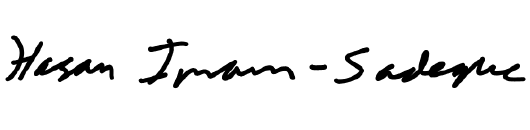 Hasan Imam-Sadeque